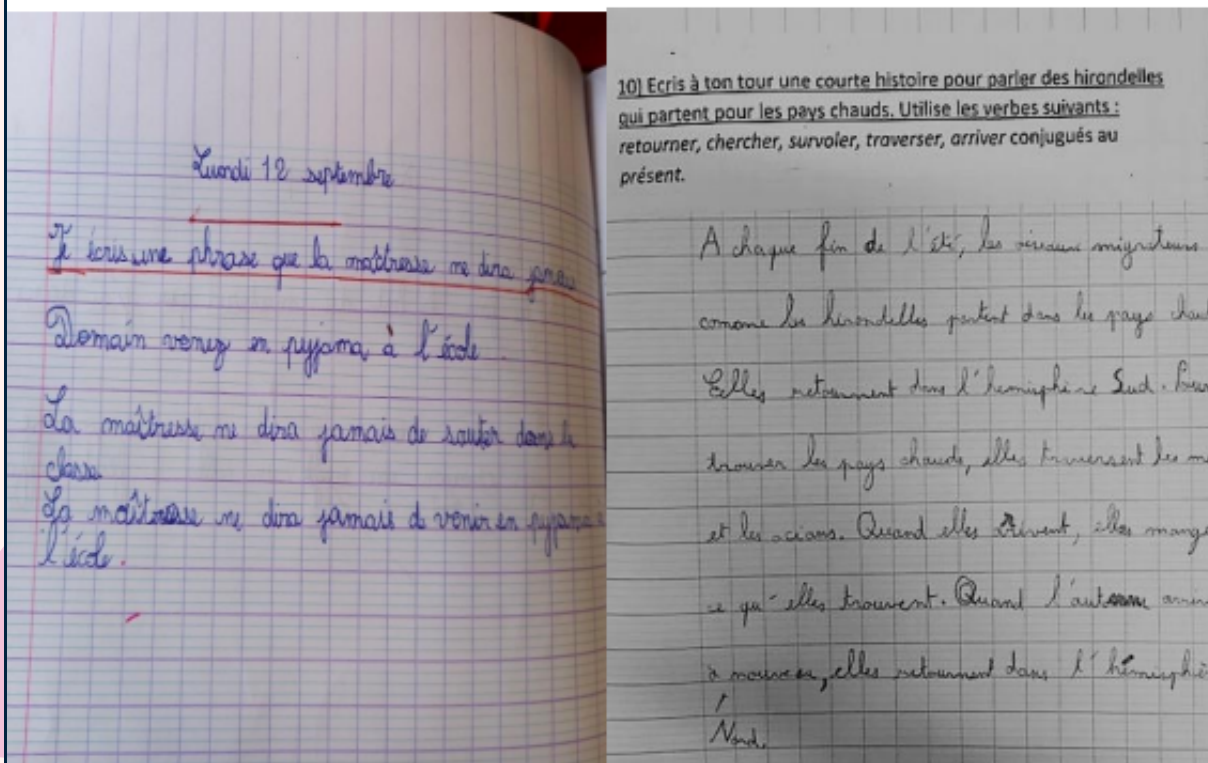 Lundi 12 septembre
Je écris une phrase que la maîtresse ne dira jamais
Demain venez en pyjama à l'école.
La maîtresse ne dira jamais de sauter dans la
classe
La maîtresse ne dira jamais de venir en pyjama à
l'école.
10) Ecris à ton tour une courte histoire pour parler des hirondelles
qui partent pour les pays chauds. Utilise les verbes suivants :
retourner, chercher, survoler, traverser, arriver conjugués au
présent.
A chaque fin de l'été, les oiseaux migrateurs
comme les hirondelles partent dans les pays chau
Elles retournent dans l'hemisphère Sud. Pour
trouver les pays chauds, elles traversent les m
et les océans. Quand elles arrivent, elles mange
ce qu'elles trouvent. Quand l'automne arrive
à nouveau, elles retournent dans l'hémisphè
Nord.